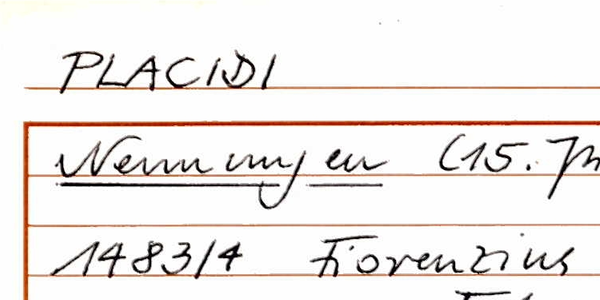 PLACIDI
Nennungen (15. Jh
1483/4 Fiorenzius